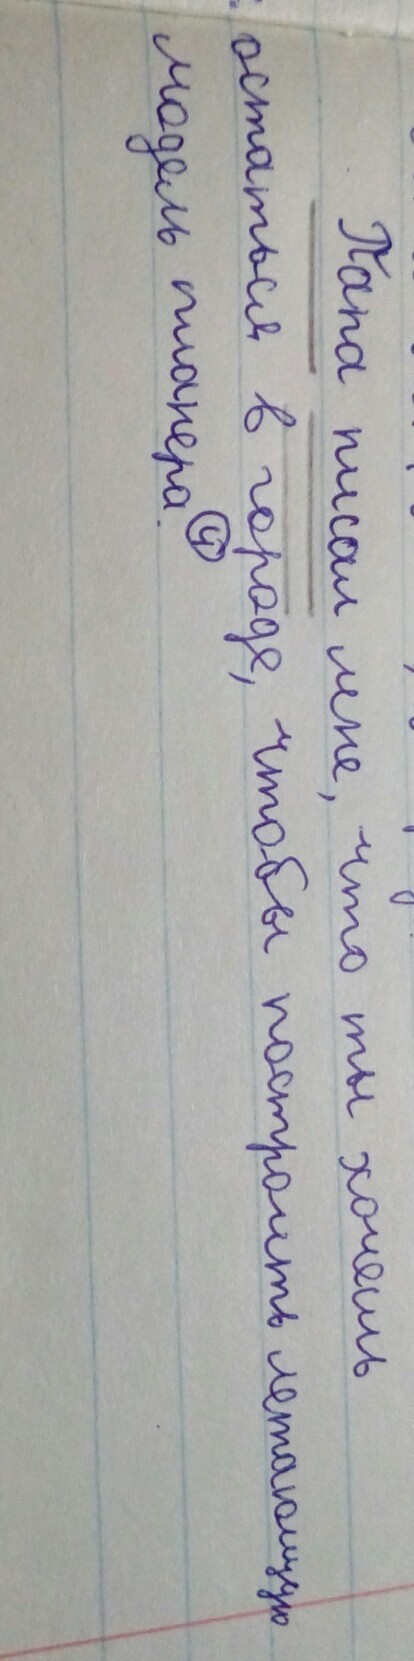 Папа писал мне, что ты хочешь
остаться в городе, чтобы построить летающую
модель планера. ④